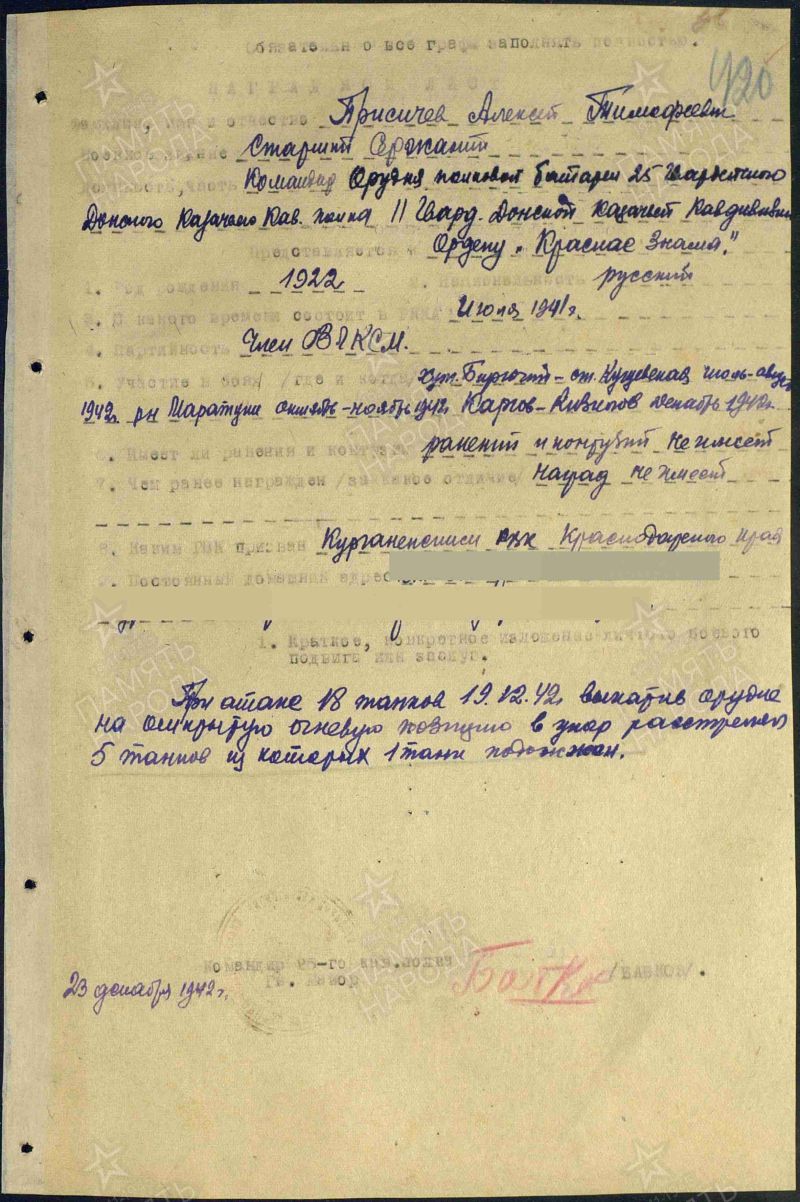 Обязательн о все графы заполнять полностью.
420
НАГРАДНОЙ ЛИСТ
Фамилия, имя и отчество Присичев Алексей Тимофеевич
Военное звание Старший Сержант
Должность, часть Командир Орудия полковой батареи 25 Гвардейского
Донского Казачьего Кав. полка 11 Гвард. Донской Казачьей Кавдивизии
Представляется к Ордену „Красное Знамя."
1. Год рождения 1922 2. Национальность русский
3. С какого времени состоит в РККА Июля 1941г.
4. Партийность Член ВЛКСМ.
5. Участие в боях /где и когда/ хут. Бирючий - ст. Кущевская июль-август
1942г. рн Маратуки октябрь-ноябрь 1942г. декабрь 1942г.
6. Имеет ли ранения и контузии ранений и контузий не имеет
7. Чем ранее награжден /за какое отличие/ наград не имеет
8. Каким РВК призван РВК Краснодарского края
9. Постоянный домашний адрес
1. Краткое, конкретное изложение личного боевого
подвига или заслуг.
При атаке 18 танков 19.12.42г выкатив орудие
на открытую огневую позицию в упор расстрелял
5 танков из которых 1 танк подожжен.
Командир 25-го
Гв. Майор
/БАВКОВ/.
23 декабря 1942г.
ПАМЯТЬ НАРОДА